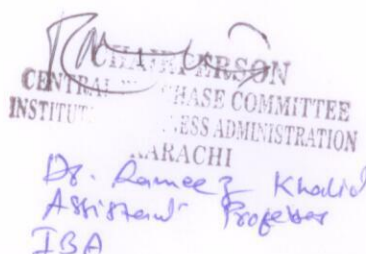 CHAIRPERSON
CENTRAL CHASE COMMITTEE
INSTITUT ESS ADMINISTRATION
KARACHI
Dr. Rameez Khalid
Assistant Professor
IBA